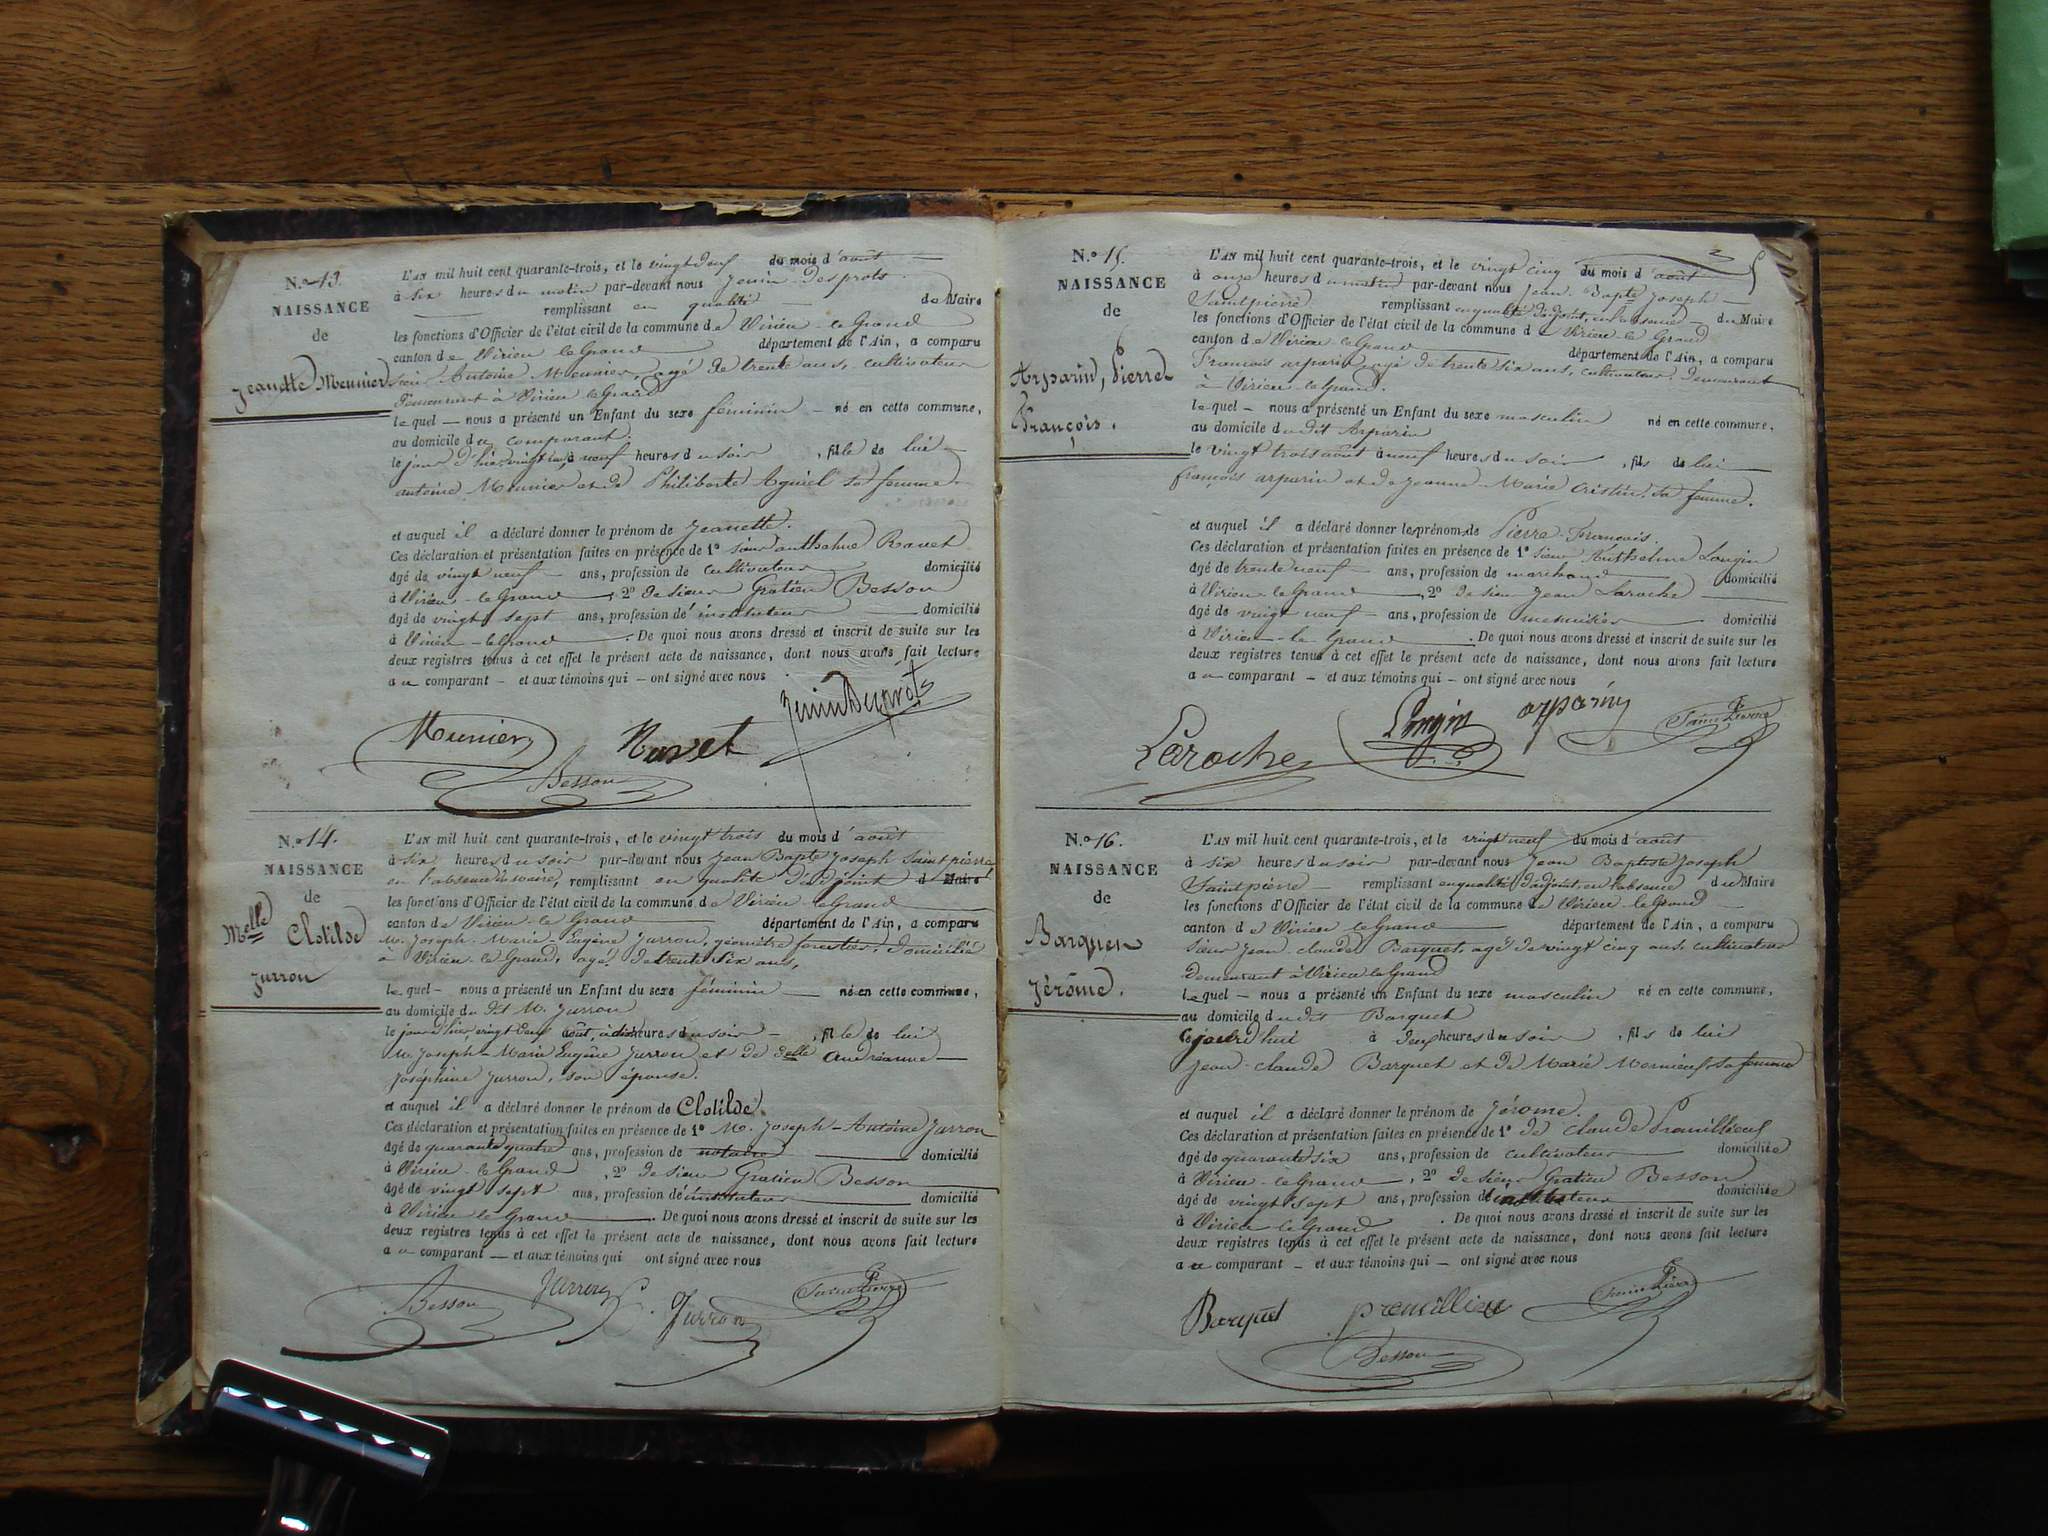 N.o 13.
NAISSANCE
de
Jeanette Meunier
L'AN mil huit cent quarante-trois, et le vingt deux du mois d'août
à six heures du matin par-devant nous Jenin Desprots
remplissant en qualité de Maire
les fonctions d'Officier de l'état civil de la commune de Virieu-le Grand
canton de Virieu le Grand département de l'Ain, a comparu
sieur Antoine Meunier, agé de trente ans, cultivateur
demeurant à Virieu le Grand
lequel — nous a présenté un Enfant du sexe féminin — né en cette commune,
au domicile du comparant.
le jour d'hier vingt un, à neuf heures du soir, fille de lui
antoine Meunier et de Philiberte Aguiel sa femme.
et auquel il a déclaré donner le prénom de Jeanette.
Ces déclaration et présentation faites en présence de 1° sieur anthelme Ravet
âgé de vingt neuf ans, profession de cultivateur domicilié
à Virieu-le Grand, 2° de sieur Gratien Besson
âgé de vingt sept ans, profession d'instituteur domicilié
à Virieu-le Grand. De quoi nous avons dressé et inscrit de suite sur les
deux registres tenus à cet effet le présent acte de naissance, dont nous avons fait lecture
au comparant — et aux témoins qui — ont signé avec nous
JeninDesprots
Meunier Ravet
Besson
N.o 14.
NAISSANCE
de
Melle Clotilde
Jurron
L'AN mil huit cent quarante-trois, et le vingt trois du mois d'août
à six heures du soir par-devant nous Jean Bapte Joseph Saint pierre
en l'absence du maire, remplissant en qualité d'adjoint d Maire
les fonctions d'Officier de l'état civil de la commune de Virieu-le Grand
canton de Virieu-le Grand département de l'Ain, a comparu
M. Joseph-Marie-Eugène Jurron, géomètre forestier, domicilié
à Virieu-le Grand, agé de trente six ans,
lequel — nous a présenté un Enfant du sexe féminin — né en cette commune,
au domicile du dit M. Jurron
le jour d'hier, vingt deux août, à dix heures du soir —, fille de lui
M. Joseph-Marie Eugène Jurron et de delle Andréanne
Joséphine Jurron, son épouse.
et auquel il a déclaré donner le prénom de Clotilde.
Ces déclaration et présentation faites en présence de 1° M. Joseph-Antoine Jurron
âgé de quarante quatre ans, profession de notaire domicilié
à Virieu-le Grand, 2° de sieur Gratien Besson
âgé de vingt sept ans, profession d'instituteur domicilié
à Virieu le Grand. De quoi nous avons dressé et inscrit de suite sur les
deux registres tenus à cet effet le présent acte de naissance, dont nous avons fait lecture
au comparant — et aux témoins qui ont signé avec nous
Besson Jurron Jurron SaintPierre
N.o 15.
NAISSANCE
de
Arparin, Pierre
François.
L'AN mil huit cent quarante-trois, et le vingt cinq du mois d'août
à onze heures du matin par-devant nous Jean Bapte Joseph
Saintpierre remplissant en qualité d'adjoint, en l'absence du Maire
les fonctions d'Officier de l'état civil de la commune de Virieu-le Grand
canton de Virieu-le Grand département de l'Ain, a comparu
François arparin agé de trente six ans, cultivateur demeurant
à Virieu-le Grand.
lequel — nous a présenté un Enfant du sexe masculin né en cette commune,
au domicile dudit Arparin
le vingt trois août à neuf heures du soir, fils de lui
françois arparin et de Jeanne-Marie Cristin, sa femme.
et auquel il a déclaré donner les prénoms de Pierre-François.
Ces déclaration et présentation faites en présence de 1° sieur Anthelme Longin
âgé de trente neuf ans, profession de marchand domicilié
à Virieu-le Grand, 2° de sieur Jean Laroche
âgé de vingt neuf ans, profession de menuisier domicilié
à Virieu-le Grand. De quoi nous avons dressé et inscrit de suite sur les
deux registres tenus à cet effet le présent acte de naissance, dont nous avons fait lecture
au comparant — et aux témoins qui — ont signé avec nous
Laroche Longin arparin SaintPierre
N.o 16.
NAISSANCE
de
Barquet
Jérôme.
L'AN mil huit cent quarante-trois, et le vingt neuf du mois d'août
à six heures du soir par-devant nous Jean Baptiste Joseph
Saintpierre — remplissant en qualité d'adjoint, en l'absence du Maire
les fonctions d'Officier de l'état civil de la commune de Virieu-le Grand
canton de Virieu le Grand département de l'Ain, a comparu
sieur Jean claude Barquet, agé de vingt cinq ans, cultivateur
demeurant à Virieu le Grand
lequel — nous a présenté un Enfant du sexe masculin né en cette commune,
au domicile dudit Barquet
cejourd'hui à deux heures du soir, fils de lui
Jean-claude Barquet et de Marie sa femme
et auquel il a déclaré donner le prénom de Jérome.
Ces déclaration et présentation faites en présence de 1° de claude Premillieu
âgé de quarante six ans, profession de cultivateur domicilié
à Virieu-le Grand, 2° de sieur Gratien Besson
âgé de vingt sept ans, profession d'instituteur domicilié
à Virieu-le Grand. De quoi nous avons dressé et inscrit de suite sur les
deux registres tenus à cet effet le présent acte de naissance, dont nous avons fait lecture
au comparant — et aux témoins qui — ont signé avec nous
Barquet premillieu SaintPierre
Besson